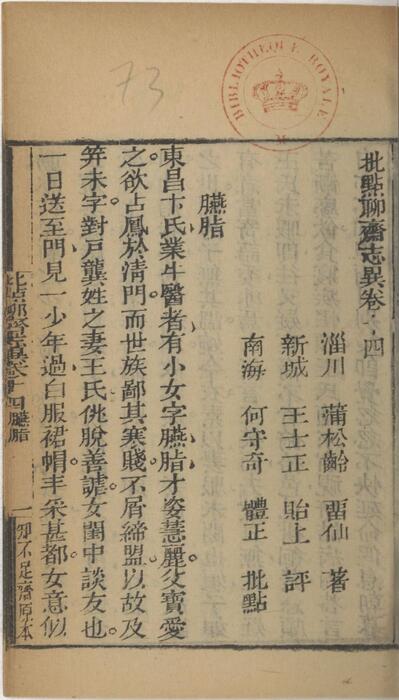 73
BIBLIOTHEQUE ROYALE
批點聊齋志異卷十四
淄川 蒲松齡 畱仙 著
新城 王士正 貽上 評
南海 何守奇 體正 批點
臙脂
東昌卞氏業牛醫者有小女字臙脂才姿慧麗父寶愛
之欲占鳳於清門而世族鄙其寒賤不屑締盟以故及
笄未字對戶龔姓之妻王氏佻脫善謔女閨中談友也
一日送至門見一少年過白服裙帽丰采甚都女意似
批點聊齋志異卷十四 臙脂 一 知不足齋原本